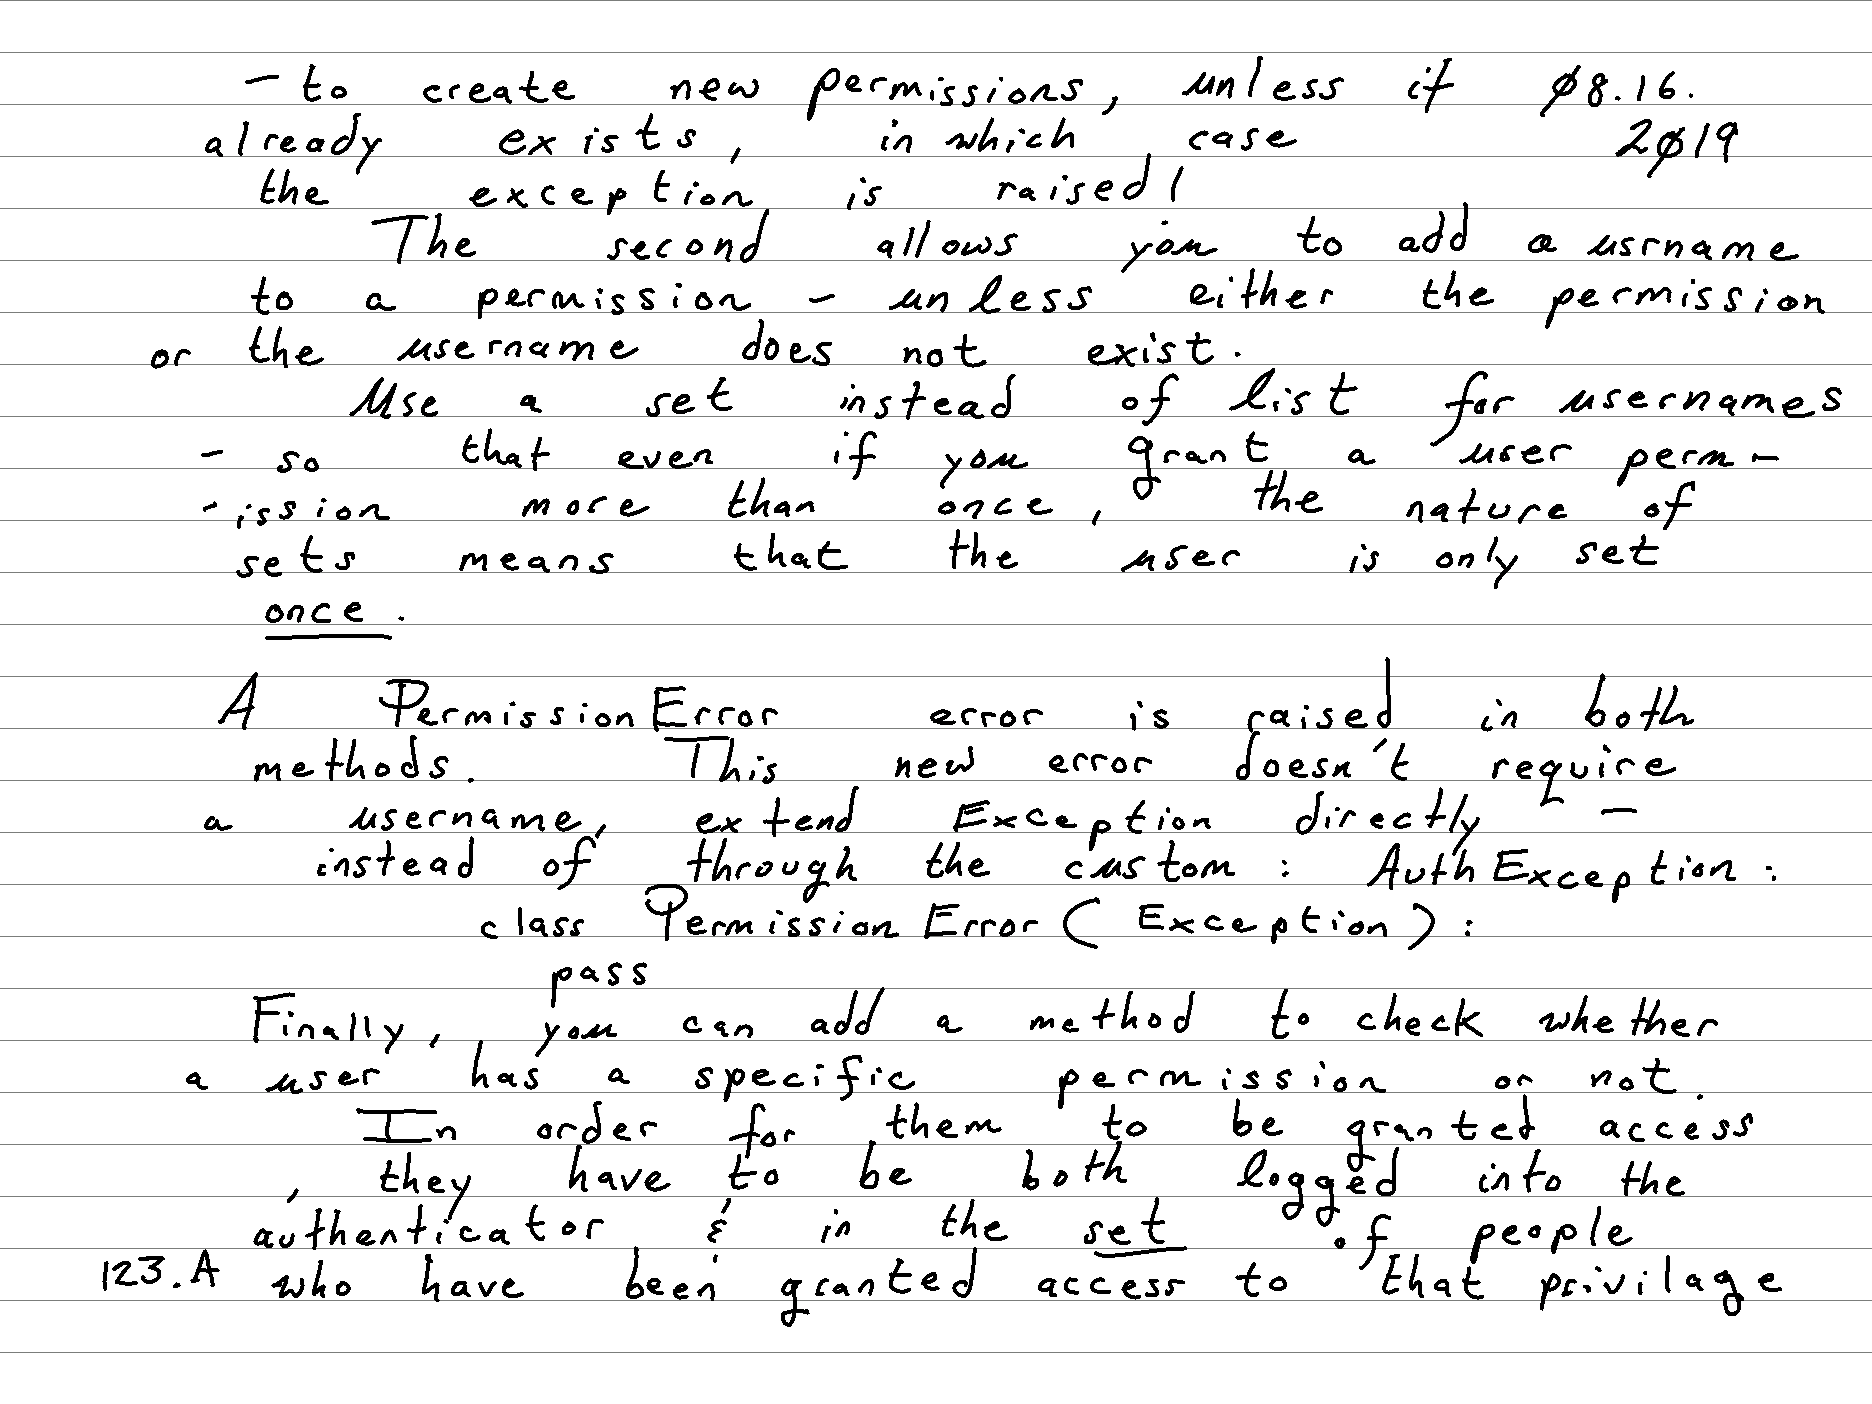 - to create new permissions, unless it Ø8.16.
already exists, in which case 2Ø19
the exception is raised!
The second allows you to add a usrname
to a permission - unless either the permission
or the username does not exist.
Use a set instead of list for usernames
- so that even if you grant a user perm-
-ission more than once, the nature of
sets means that the user is only set
once.
A PermissionError error is raised in both
methods. This new error doesn't require
a username, extend Exception directly -
instead of through the custom : AuthException :
class PermissionError(Exception):
pass
Finally, you can add a method to check whether
a user has a specific permission or not.
In order for them to be granted access
, they have to be both logged into the
authenticator & in the set of people
123.A who have been granted access to that privilage